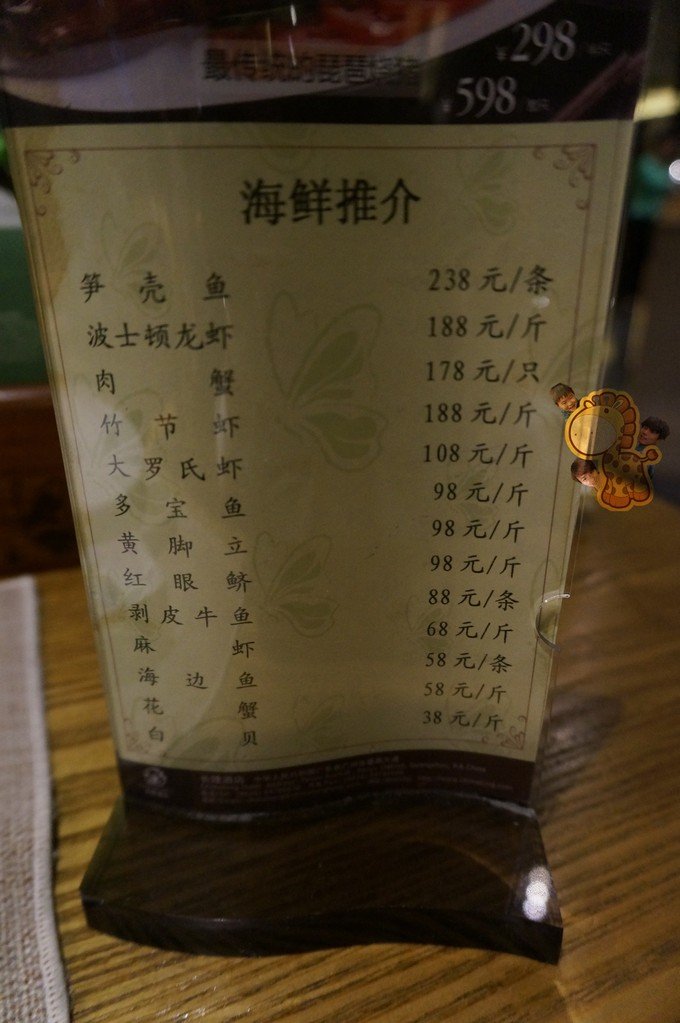 ¥298
最传统的琵琶烧猪
¥598
海鲜推介
笋壳鱼 238元/条
波士顿龙虾 188元/斤
肉蟹 178元/只
竹节虾 188元/斤
大罗氏虾 108元/斤
多宝鱼 98元/斤
黄脚立 98元/斤
红眼鲚 98元/斤
剥皮牛鱼 88元/条
麻虾 68元/斤
海边鱼 58元/条
花蟹 58元/斤
白贝 38元/斤